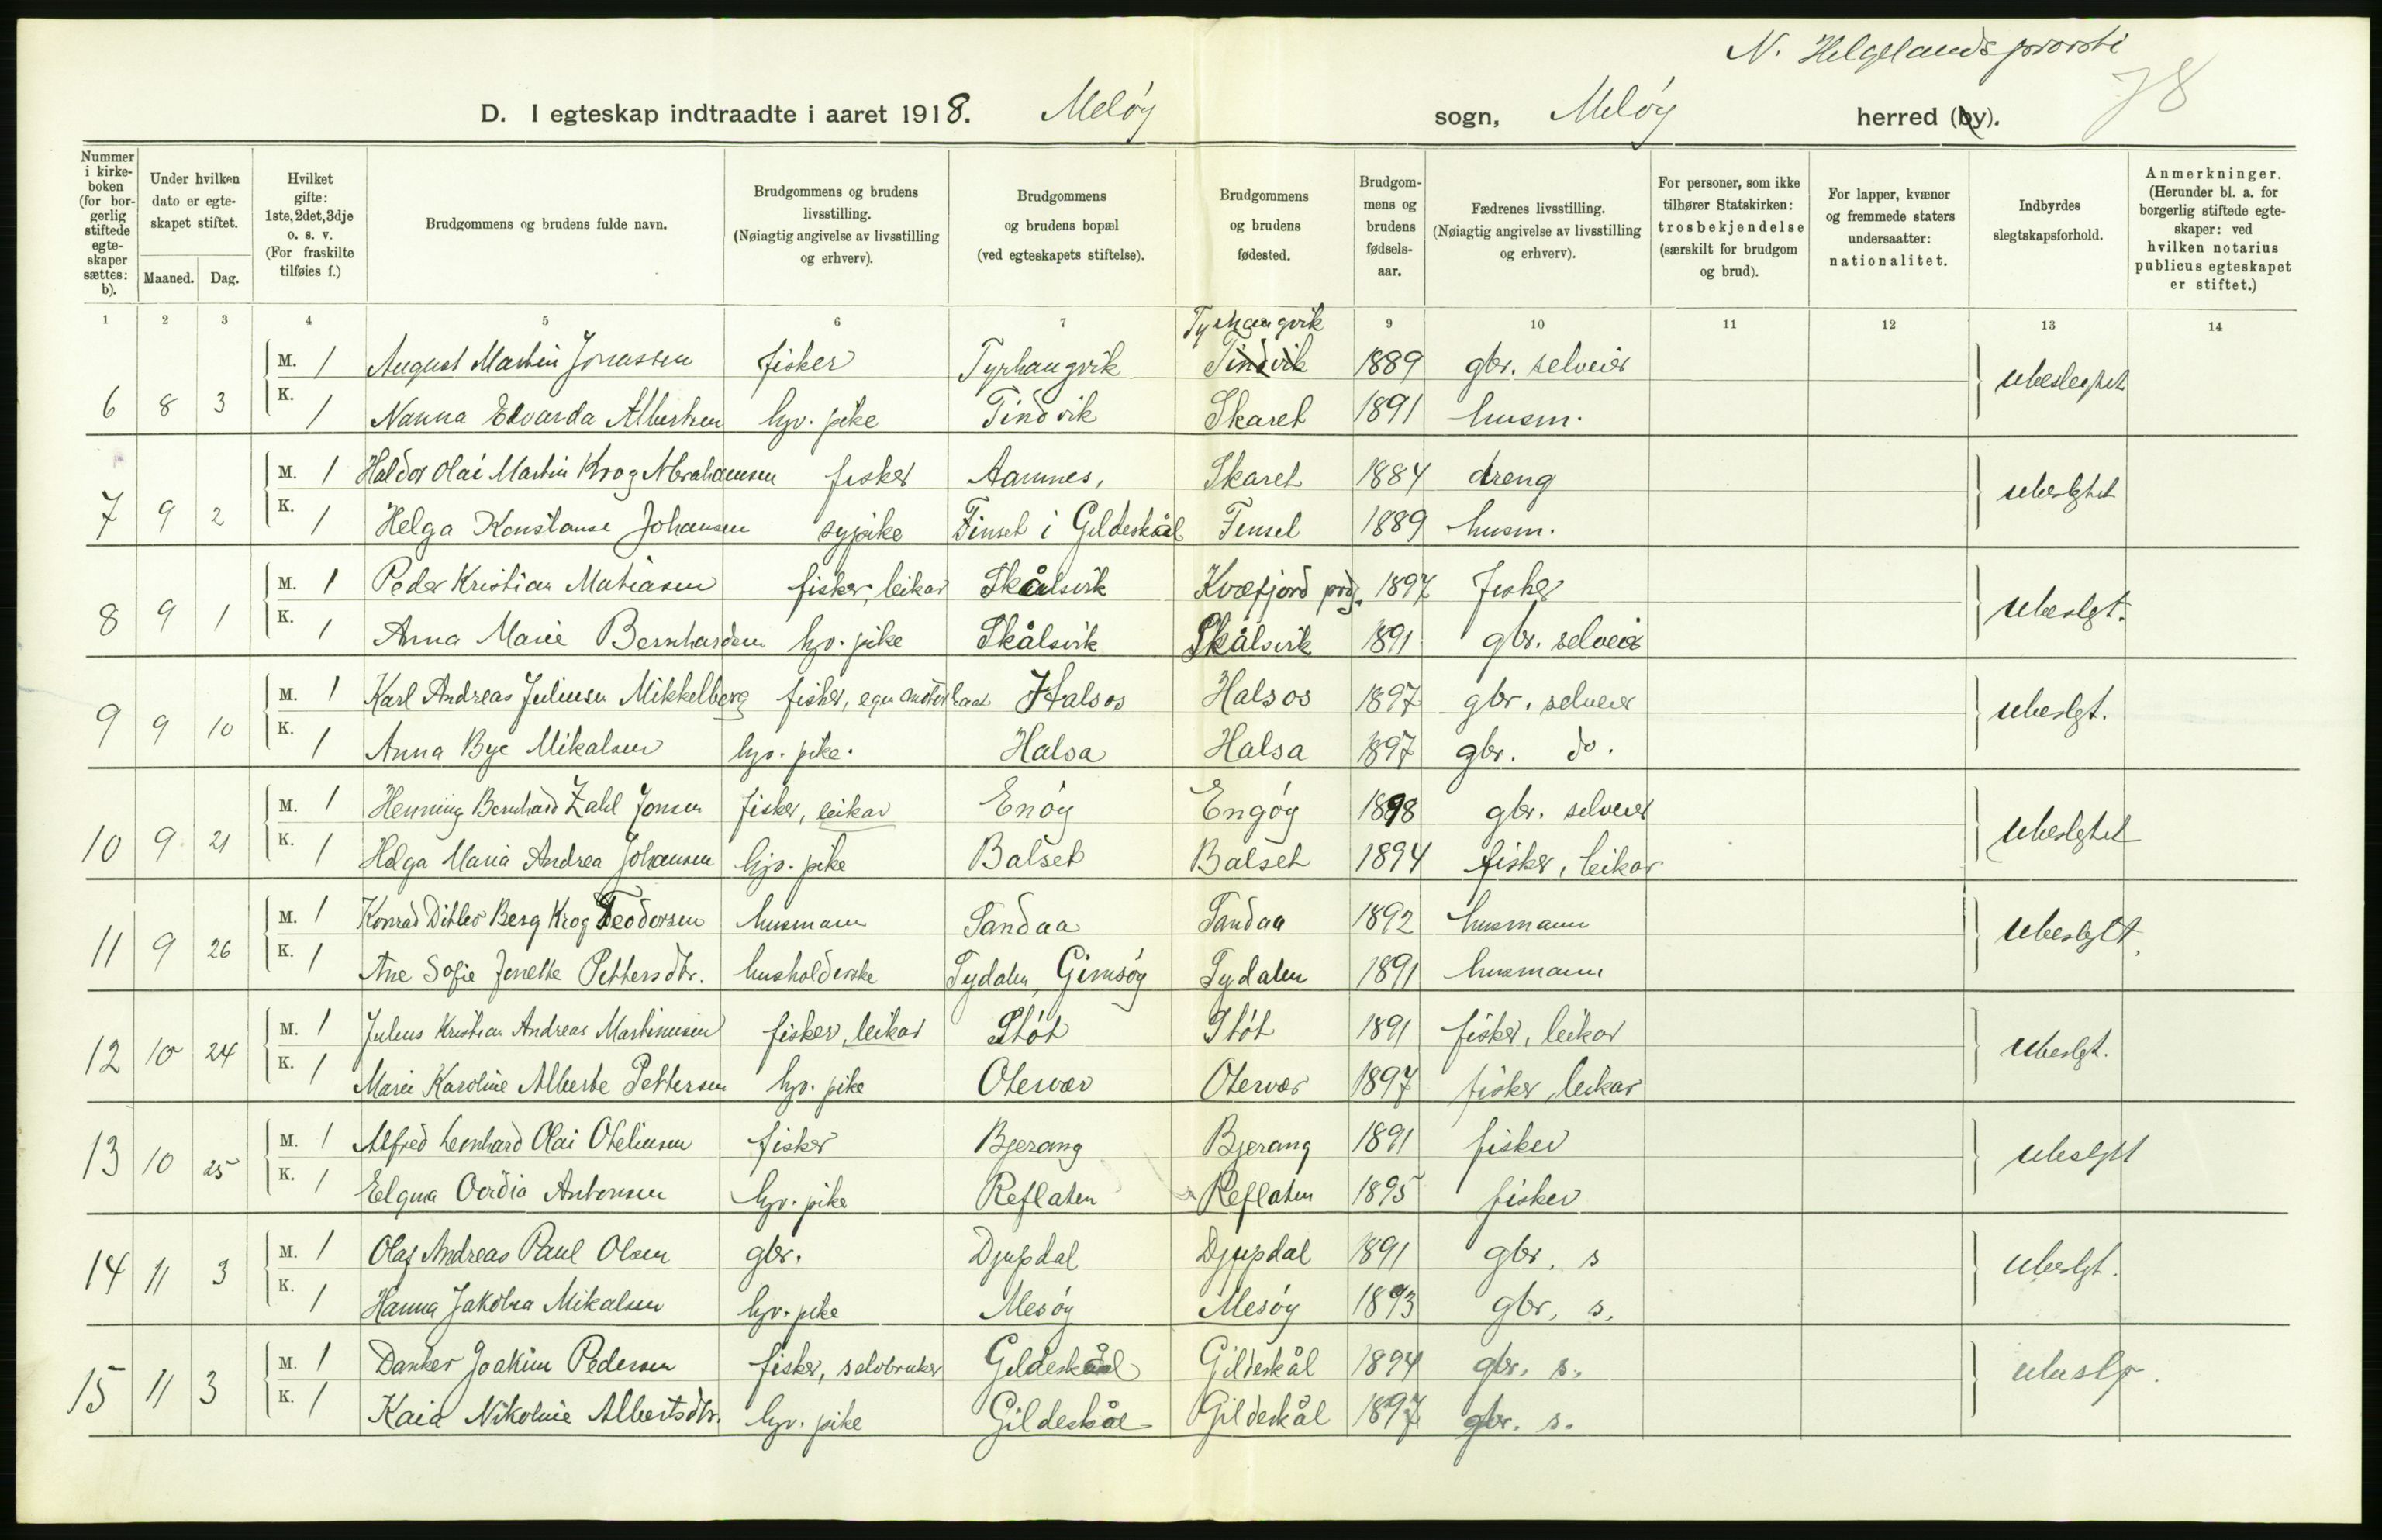 N. Helgelands provsti
78
D. I egteskap indtraadte i aaret 1918. Meløy sogn, Meløy herred (by).
Nummer i kirkeboken (for borgerlig stiftede egteskaper sættes: b).
Under hvilken dato er egteskapet stiftet.
Maaned. Dag.
Hvilket gifte: 1ste, 2det, 3dje o. s. v. (For fraskilte tilføies f.)
Brudgommens og brudens fulde navn.
Brudgommens og brudens livsstilling. (Nøiagtig angivelse av livsstilling og erhverv).
Brudgommens og brudens bopæl (ved egteskapets stiftelse).
Brudgommens og brudens fødested.
Brudgommens og brudens fødselsaar.
Fædrenes livsstilling. (Nøiagtig angivelse av livsstilling og erhverv).
For personer, som ikke tilhører Statskirken: trosbekjendelse (særskilt for brudgom og brud).
For lapper, kvæner og fremmede staters undersaatter: nationalitet.
Indbyrdes slegtskapsforhold.
Anmerkninger. (Herunder bl. a. for borgerlig stiftede egteskaper: ved hvilken notarius publicus egteskapet er stiftet.)
1 2 3 4 5 6 7 9 10 11 12 13 14
Tyrhaugvik
M. 1 August Martin Jonassen fisker Tyrhaugvik Tindvik 1889 gbr. selveier
6 8 3 ubeslegtet
K. 1 Nanna Edvarda Albertsen hjv. pike Tindvik Skaret 1891 husm.
M. 1 Haldor Olai Martin Krog Abrahamsen fisker Aamnes, Skaret 1884 dreng
7 9 2 ubeslgtet
K. 1 Helga Konstanse Johansen sypike Finset i Gildeskål Finset 1889 husm.
M. 1 Peder Kristian Matiasen fisker, leikar Skålsvik Kvæfjord prg. 1897 fisker
8 9 1 ubeslgt.
K. 1 Anna Marie Bernhardsen hjv. pike Skålsvik Skålsvik 1891 gbr. selveier
M. 1 Karl Andreas Juliusen Mikkelberg fisker, egen motorbaat Halsos Halsos 1897 gbr. selveier
9 9 10 ubeslgt.
K. 1 Anna Bye Mikalsen hjv. pike. Halsa Halsa 1897 gbr. do.
M. 1 Henning Bernhard Zahl Jonsen fisker, leikar Enøy Engøy 1898 gbr. selveier
10 9 21 ubeslgtet
K. 1 Helga Maria Andrea Johansen hjv. pike Balset Balset 1894 fisker, leikar
M. 1 Konrad Ditlev Berg Krog Teodorsen husmann Sandaa Sandaa 1892 husmann
11 9 26 ubeslgtt.
K. 1 Ane Sofie Jenette Pettersdtr. husholderske Sydalen, Gimsøy Sydalen 1891 husmann
M. 1 Julius Kristian Andreas Martinusen fisker, leikar Støt Støt 1891 fisker, leikar
12 10 24 ubeslgt.
K. 1 Marie Karoline Alberte Pettersen hjv. pike Otervær Otervær 1897 fisker leikar
M. 1 Alfred Leonhard Olai Oteliusen fisker Bjerang Bjerang 1891 fisker
13 10 25 ubeslgtt
K. 1 Antonsen hjv. pike Reflaten Reflaten 1895 fisker
M. 1 Olaf Andreas Paul Olsen gbr. Djupdal Djupdal 1891 gbr. s
14 11 3 ubeslgt.
K. 1 Hanna Jakobea Mikalsen hjv. pike Mesøy Mesøy 1893 gbr. s.
M. 1 Danker Joakim Pedersen fisker, selvbruker Gildeskål Gildeskål 1894 gbr. s.
15 11 3 ubeslg.
K. 1 Kaia Nikoline Albertsdtr. hjv. pike Gildeskål Gildeskål 1897 gbr. s.